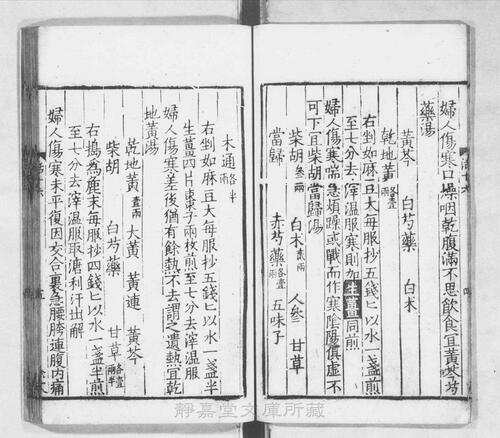 婦人傷寒口燥咽乾腹滿不思飲食宜黃芩芍
藥湯
黃芩 白芍藥 白朮
乾地黃各壹兩
右剉如麻豆大每服抄五錢匕以水一盞煎
至七分去滓溫服寒則加生薑同煎
婦人傷寒喘急煩躁或戰而作寒陰陽俱虛不
可下宜柴胡當歸湯
柴胡叁兩 白朮貳兩 人參 甘草
當歸 赤芍藥各壹兩 五味子
木通各半兩
右剉如麻豆大每服抄五錢匕以水一盞半
生薑四片棗子兩枚煎至七分去滓溫服
婦人傷寒差後猶有餘熱不去謂之遺熱宜乾
地黃湯
乾地黃壹兩 大黃 黃連 黃芩
柴胡 白芍藥 甘草各壹兩半
右搗為麄末每服抄四錢匕以水一盞半煎
至七分去滓溫服取溏利汗出解
婦人傷寒未平復因交合裏急腰胯連腹內痛
靜嘉堂文庫所藏